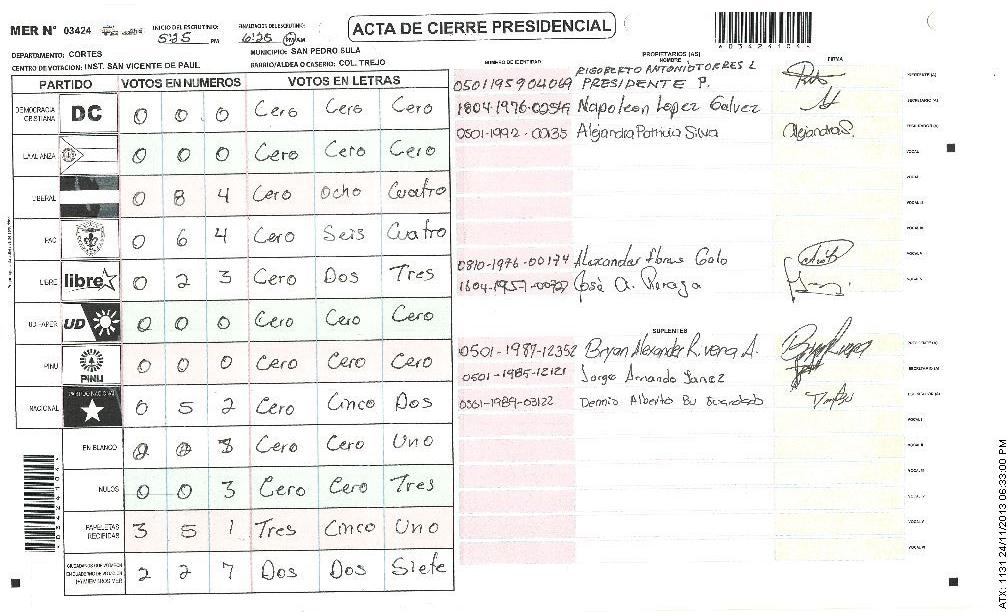 MER Nº 03424 INICIO DEL ESCRUTINIO: 5:25 PM FINALIZACION DEL ESCRUTINIO: 6:25 PM AM
ACTA DE CIERRE PRESIDENCIAL
DEPARTAMENTO: CORTES MUNICIPIO: SAN PEDRO SULA
CENTRO DE VOTACION: INST. SAN VICENTE DE PAUL BARRIO/ALDEA O CASERIO: COL. TREJO
PARTIDO VOTOS EN NUMEROS VOTOS EN LETRAS
DEMOCRACIA CRISTIANA DC 0 0 0 Cero Cero Cero
LA ALIANZA 0 0 0 Cero Cero Cero
LIBERAL 0 8 4 Cero Ocho Cuatro
PAC 0 6 4 Cero Seis Cuatro
LIBRE libre 0 2 3 Cero Dos Tres
UD-FAPER UD 0 0 0 Cero Cero Cero
PINU PINU 0 0 0 Cero Cero Cero
NACIONAL PARTIDO NACIONAL 0 5 2 Cero Cinco Dos
EN BLANCO 0 0 Cero Cero Uno
NULOS 0 0 3 Cero Cero Tres
PAPELETAS RECIBIDAS 3 5 1 Tres Cinco Uno
CIUDADANOS QUE VOTARON EN CUADERNO DE VOTACION (+) MIEMBROS MER 2 2 7 Dos Dos Siete
PROPIETARIOS (AS)
NUMERO DE IDENTIDAD NOMBRE FIRMA
0501195904069 RIGOBERTO ANTONIO TORRES L PRESIDENTE P. PRESIDENTE (A)
Napoleon Lopez Galvez SECRETARIO (A)
0501-1992-00135 Alejandra Patricia Silva Alejandra S. ESCRUTADOR (A)
VOCAL I
VOCAL II
VOCAL III
0810-1976-00174 Alexander Gato
José A.
SUPLENTES
0501-1987-12352 Bryan Alexander Rivera A. PRESIDENTE (A)
0501-1985-12121 Jorge Armando SECRETARIO (A)
0501-1989-03122 Dennis Alberto Bu ESCRUTADOR (A)
VOCAL I
VOCAL II
VOCAL III
VOCAL IV
VOCAL V
VOCAL VI
ATX: 1131 24/11/2013 06:33:00 PM